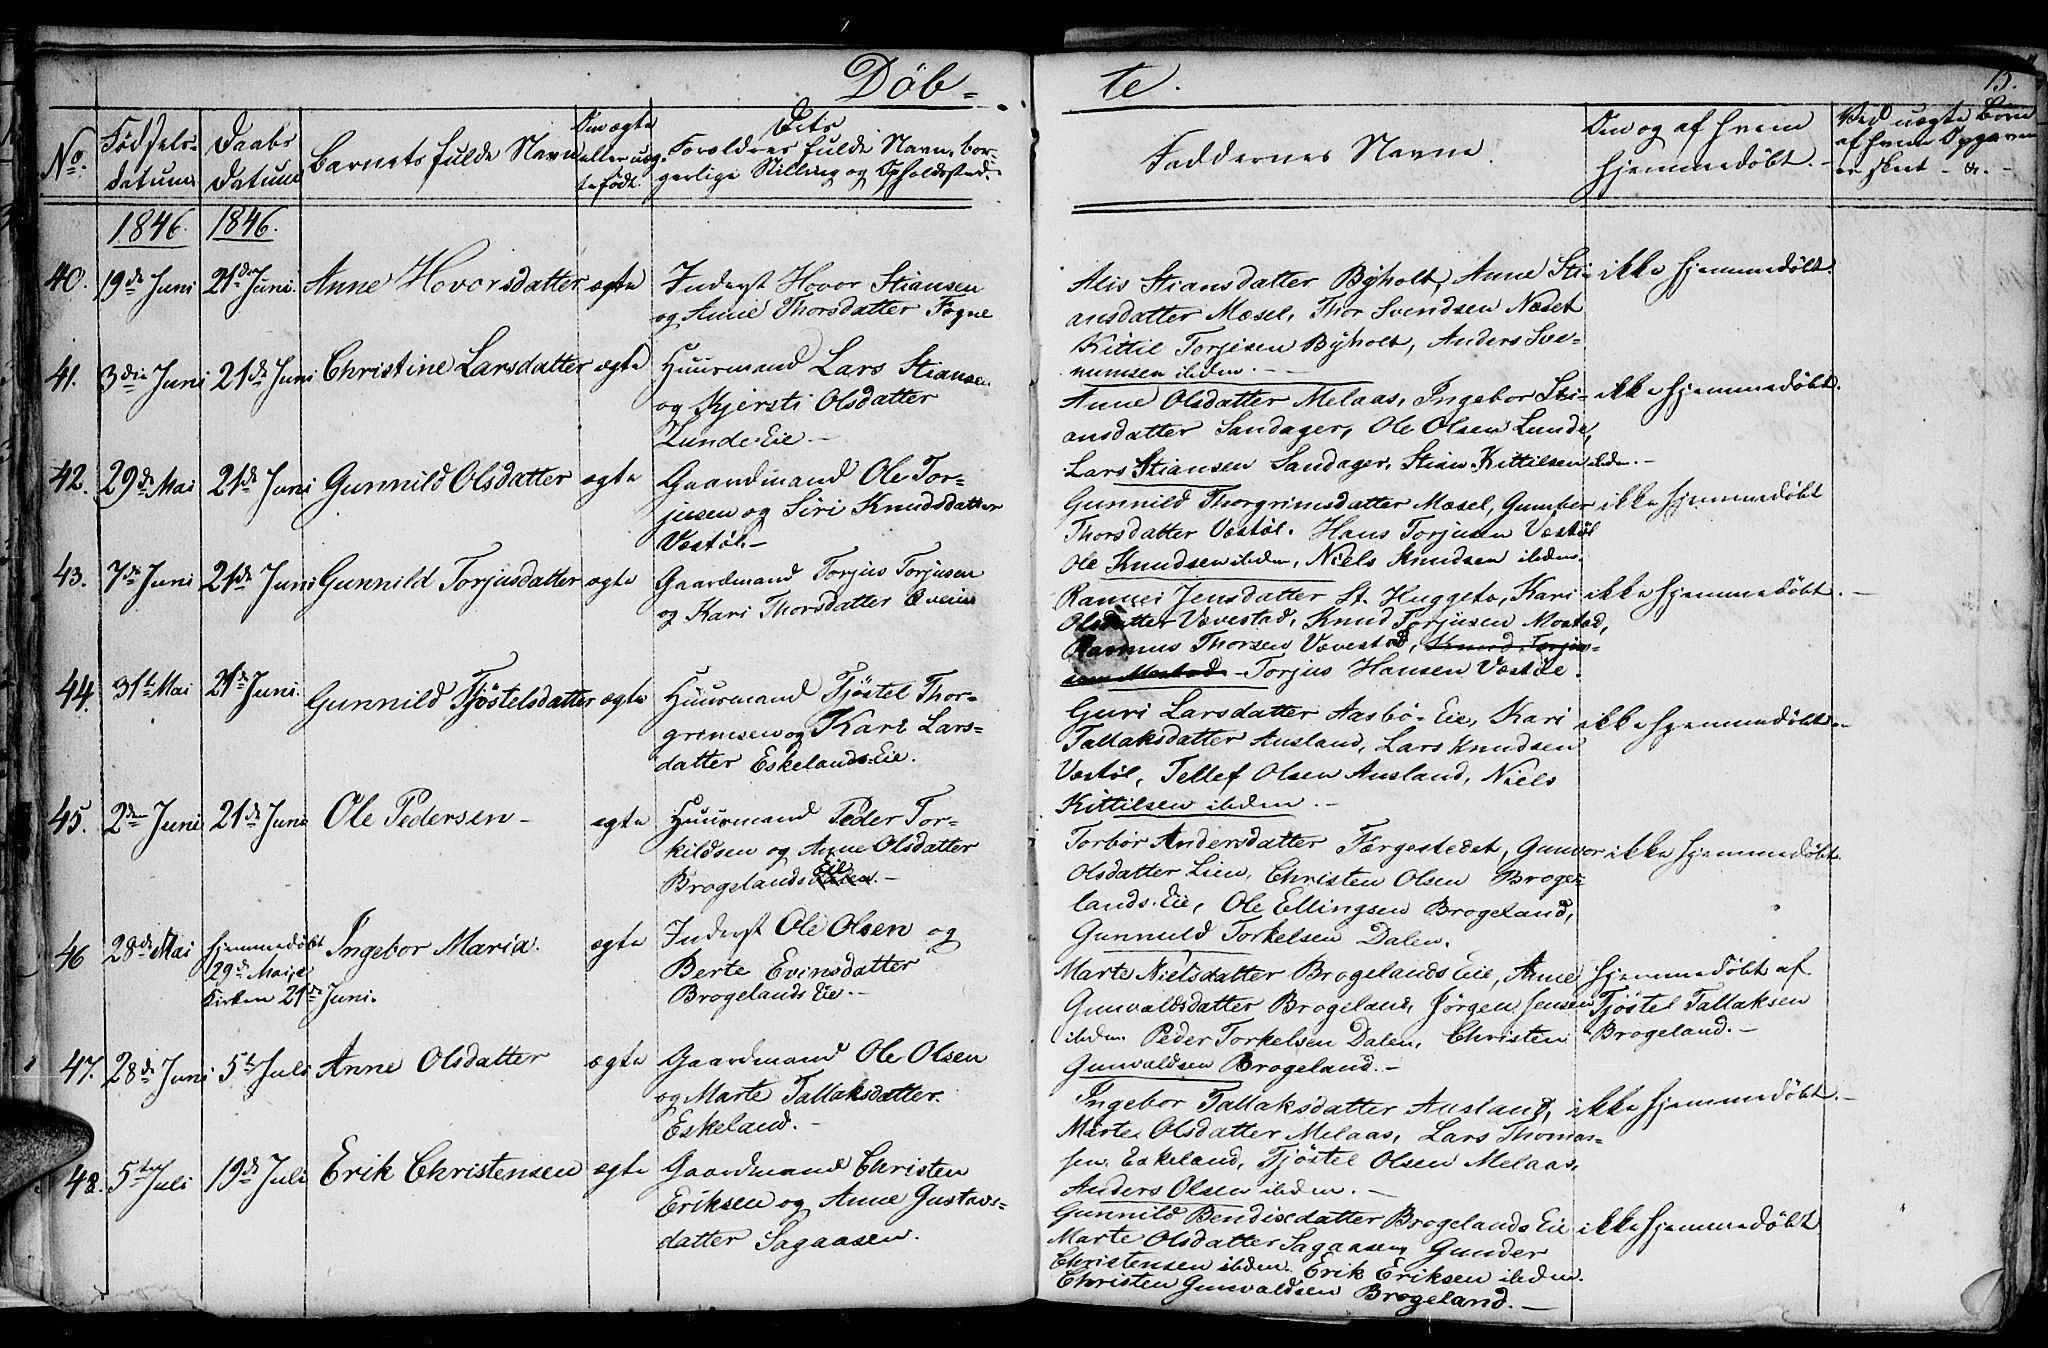 Döb-
te.
13.
No.
Fødsels-
datum
Daabs
Datum
Barnets fulde Navn
Om ægte
eller uæg-
te født.
Dets
Forældres fulde Navn, bor-
gerlige Stilling og Opholdssted.
Faddernes Navne.
Om og af hvem
hjemmedøbt.
Ved uægte Børn
af hvem Opgaven
er skeet - &.
1846. 1846.
40. 19de Juni 21de Juni. Anne Hovorsdatter ægte
Inderst Hovor Stiansen
og Anne Thorsdatter Fogne
Alis Stiansdatter Byholt, Anne Sti-
ansdatter Mæsel, Thor Svendsen Næset
Kittil Torjisen Byholt, Anders Sve-
numsen ibidem.
ikke hjemmedøbt.
41. 3die Juni 21de Juni Christine Larsdatter ægte
Huusmand Lars Stiansen
og Kjersti Olsdatter
Lunde-Eie.
Anne Olsdatter Melaas, Ingebor Sti-
ansdatter Sandager, Ole Olsen Lunde,
Lars Stiansen Sandager. Stian Kittilsen ibdm.
ikke hjemmedøbt.
42. 29de Mai 21de Juni Gunnild Olsdatter ægte
Gaardmand Ole Tor-
jusen og Siri Knudsdatter
Vestøl.
Gunnild Thorgrimsdatter Mæsel, Gumber
Thorsdatter Vestøl. Hans Torjusen Vestøl
Ole Knudsen ibidem, Niels Knudsen ibidem.
ikke hjemmedøbt
43. 7de Juni 21de Juni Gunnild Torjusdatter ægte
Gaardmand Torjus Torjusen
og Kari Thorsdatter Qveim
Rannei Jensdatter St. Huggeto, Kari
Olsdatter Vævestad, Knud Torjusen Mostad,
Rasmus Thorsen Vævestad, Knud Torjus-
sen Mostad - Torjus Hansen Vestøl.
ikke hjemmedøbt.
44. 31te Mai 21de Juni. Gunnild Tjöstelsdatter ægte
Huusmand Tjöstel Thor-
grimsen og Kari Lars-
datter Eskelands-Eie.
Guri Larsdatter Aasbö-Eie, Kari
Tallaksdatter Ausland, Lars Knudsen
Vestöl, Tellef Olsen Ausland, Niels
Kittilsen ibidem.
ikke hjemmedøbt.
45. 2den Juni 21de Juni Ole Pedersen ægte
Huusmand Peder Tor-
kildsen og Anne Olsdatter
Brogelands Eie.
Torbor Andersdatter Færgestedet, Gunvor
Olsdatter Lien, Christen Olsen Broge-
lands-Eie, Ole Ellingsen Brogeland,
Gunnuld Torkelsen Dalen.
ikke hjemmedøbt.
46 28de Mai hjemmedøbt
29de Mai, i
Kirken 21de Juni.
Ingebor Maria. ægte
Inderst Ole Olsen og
Berte Evinsdatter
Brogelands Eie.
Marte Nielsdatter Brogelands Eie, Anne
Gunvaldsdatter Brogeland, Jörgen Jensen
ibidem Peder Torkelsen Dalen, Christen
Gunvaldsen Brogeland.
hjemmedøbt af
Tjöstel Tallaksen
Brogeland.
47. 28de Juni 5te Juli Anne Olsdatter ægte
Gaardmand Ole Olsen
og Marte Tallaksdatter
Eskeland.
Ingebor Tallaksdatter Ausland,
Marte Olsdatter Melaas, Lars Thomas-
sen Eskeland, Tjöstel Olsen Melaas,
Anders Olsen ibidem.
ikke hjemmedøbt.
48. 5te Juli 19de Juli Erik Christensen ægte
Gaardmand Christen
Eriksen og Anne Gustavs-
datter Sagaasen.
Gunnild Bendixdatter Brogelands Eie
Marte Olsdatter Sagaasen, Gunder
Christensen ibidem. Erik Eriksen ibidem.
Christen Gunvaldsen Brogeland.
ikke hjemmedøbt